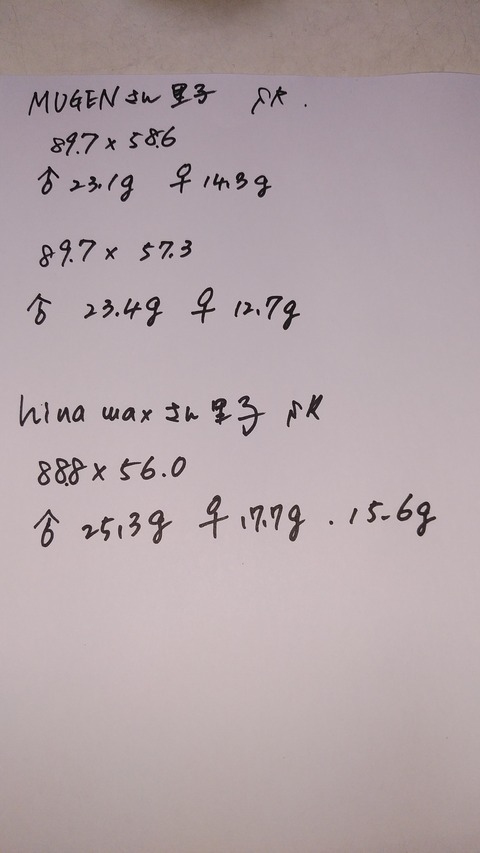 MUGENさん 里子 SR.
89.7 × 58.6
♂ 23.1g ♀ 14.3g
89.7 × 57.3
♂ 23.4g ♀ 12.7g
hina maxさん里子 SR
88.8 × 56.0
♂ 25.3g ♀ 17.7g . 15.6g